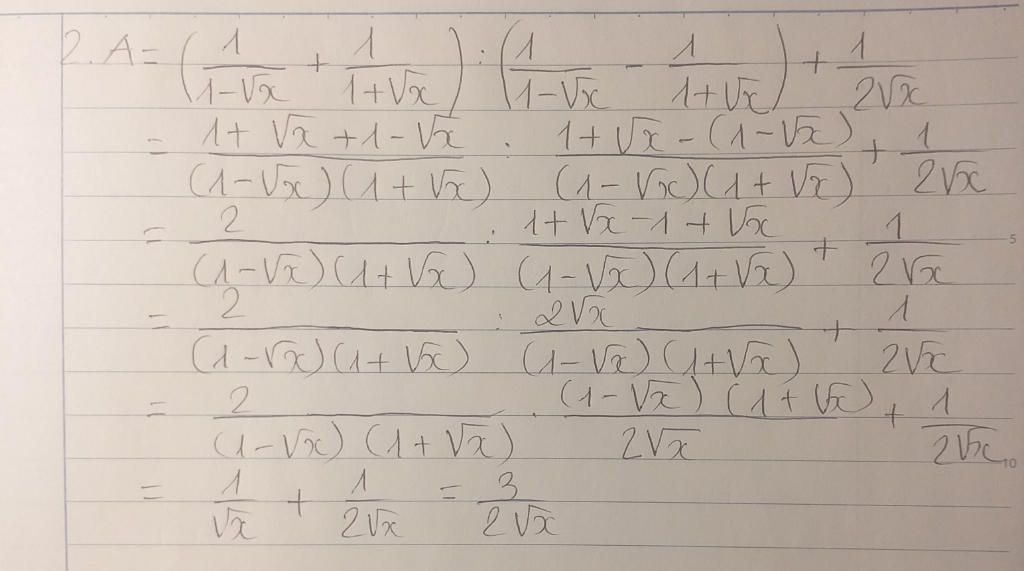 2. A = (1/(1-√x) + 1/(1+√x)) : (1/(1-√x) - 1/(1+√x)) + 1/(2√x)
= (1+√x+1-√x)/((1-√x)(1+√x)) : (1+√x-(1-√x))/((1-√x)(1+√x)) + 1/(2√x)
= 2/((1-√x)(1+√x)) : (1+√x-1+√x)/((1-√x)(1+√x)) + 1/(2√x)
5
= 2/((1-√x)(1+√x)) : 2√x/((1-√x)(1+√x)) + 1/(2√x)
= 2/((1-√x)(1+√x)) . ((1-√x)(1+√x))/(2√x) + 1/(2√x)
10
= 1/√x + 1/(2√x) = 3/(2√x)